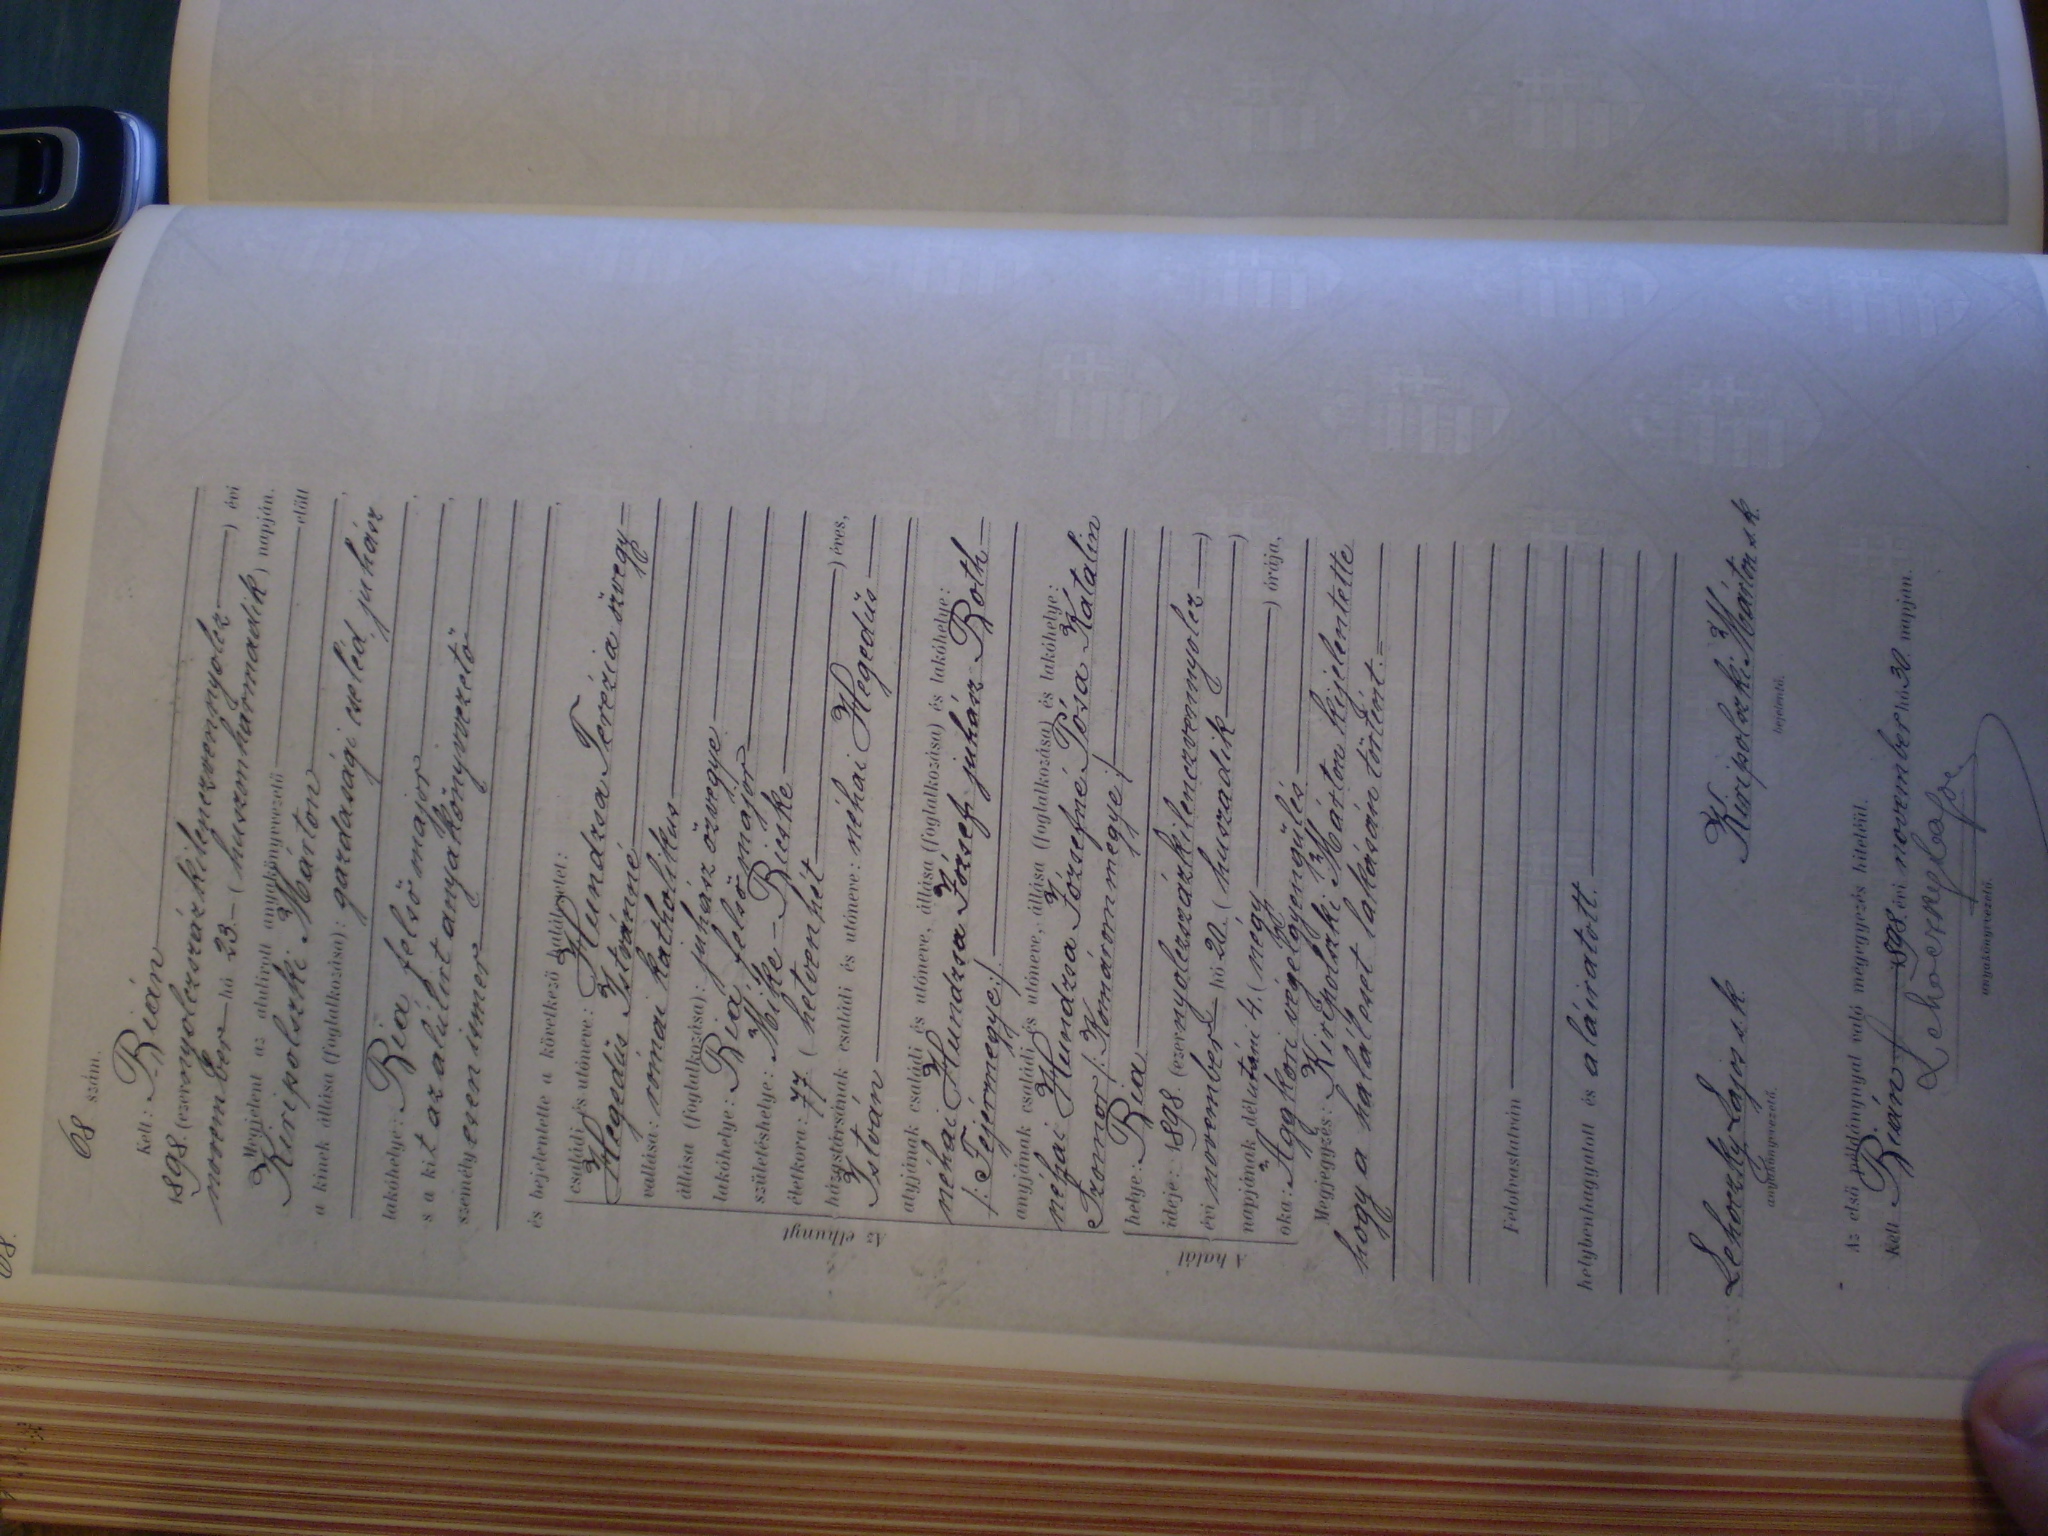 68.
68 szám.
Kelt: Bián
1898. (ezernyolczszázkilenczvennyolcz) évi
november hó 23.- (huszonharmadik) napján.
Megjelent az alulirott anyakönyvvezető előtt
Kiripolszki Márton
a kinek állása (foglalkozása): gazdasági cseléd, juhász,
lakóhelye: Bia felső major,
s a kit az alulírt anyakönyvvezető,
személyesen ismer
és bejelentette a következő halálesetet:
családi és utóneve: Hundzsa Terézia özvegy
Hegedüs Istvánné
vallása: római katholikus
állása (foglalkozása): juhász özvegye
lakóhelye: Bia felső major
születéshelye: Mike - Bicske
életkora: 77. (hetvenhét) éves,
házastársának családi és utóneve: néhai Hegedüs
István
atyjának családi és utóneve, állása (foglalkozása) és lakóhelye:
néhai Hundzsa József juhász Both
/: Fejérmegye :/
anyjának családi és utóneve, állása (foglalkozása) és lakóhelye:
néhai Hundzsa Józsefné Pósa Katalin
Szomor /: Komárommegye :/
Az elhunyt
helye: Bia
ideje: 1898. (ezernyolczszázkilenczvennyolcz)
évi november hó 20. (huszadik)
napjának délutáni 4. (négy) órája,
oka: Aggkori végelgyengülés
A halál
Megjegyzés: Kiripolszki Márton kijelentette
hogy a haláleset lakásán történt.-
Felolvastatván
helybenhagyatott és aláiratott.
Lehoczky Lajos s.k. Kiripolszki Márton s.k.
anyakönyvvezető. bejelentő.
Az első példánynyal való megegyezés hiteléül.
Kelt Bián 1898. évi november hó 30. napján.
Lehoczky Lajos
anyakönyvvezető.